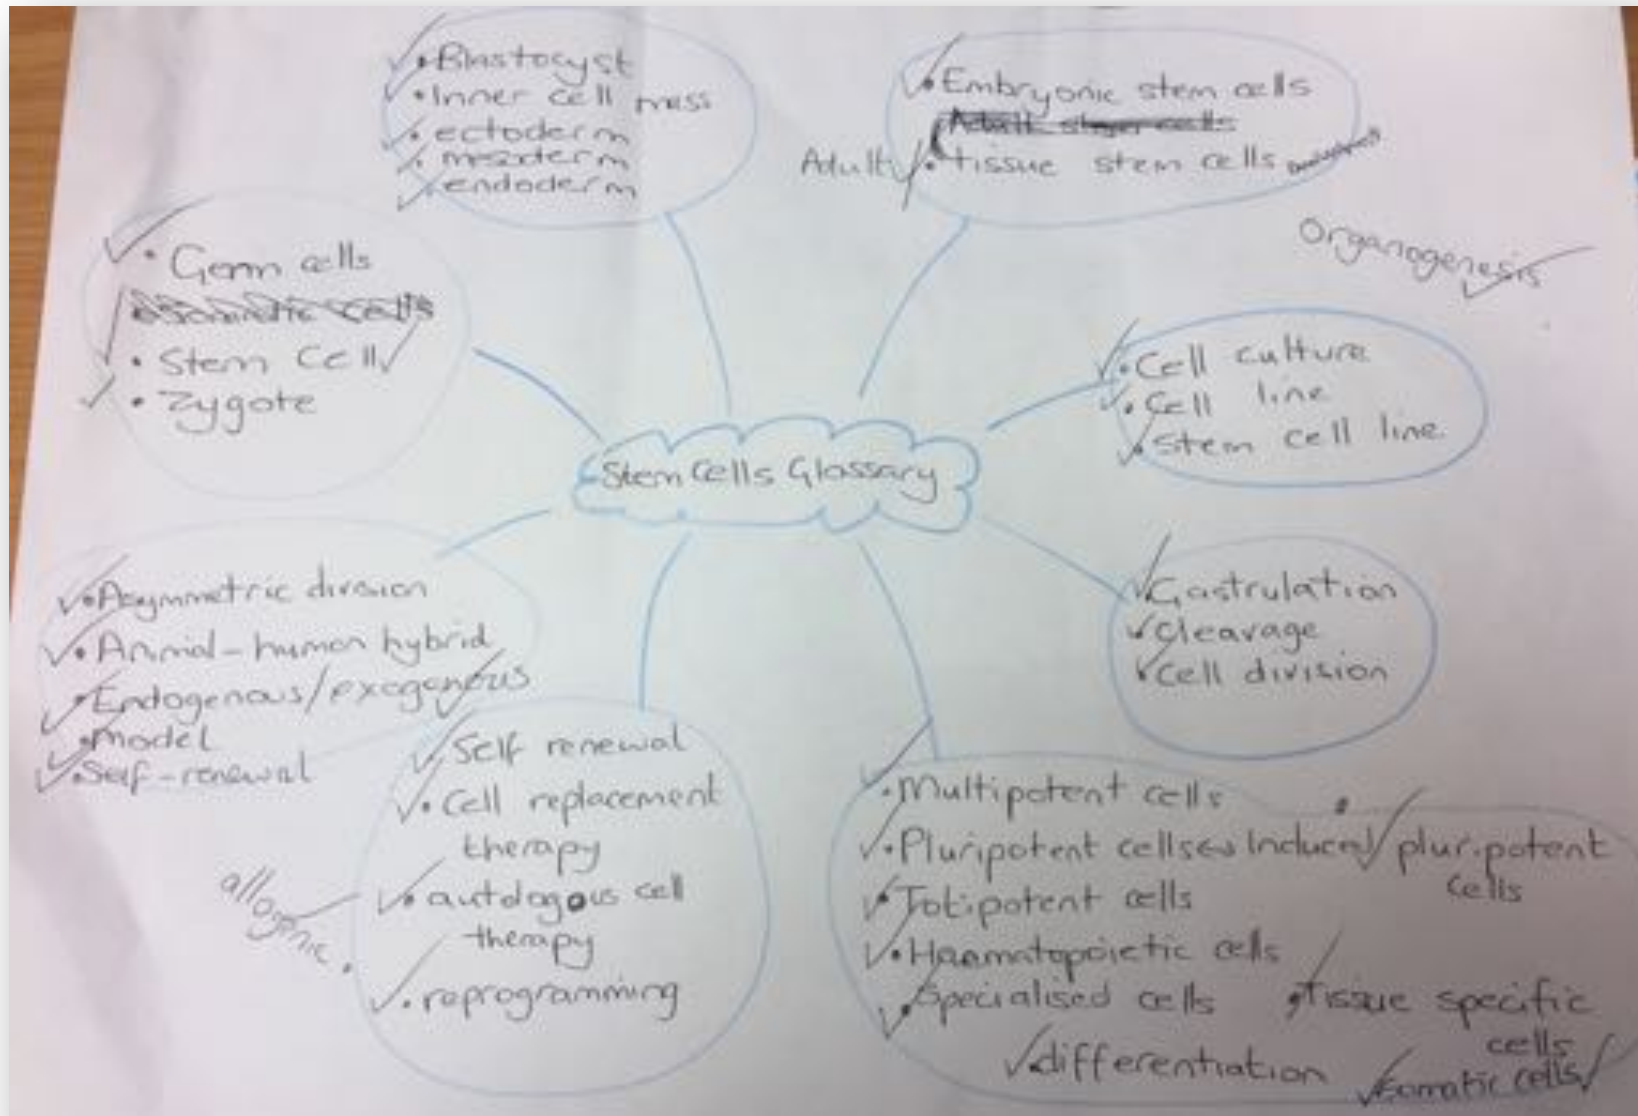 Blastocyst
Inner cell mass
ectoderm
mesoderm
endoderm
Embryonic stem cells
Adult tissue stem cells
Organogenesis
Germ cells
Stem Cell
Zygote
Cell culture
Cell line
Stem cell line
Stem Cells Glossary
Gastrulation
Cleavage
Cell division
Asymmetric division
Animal-human hybrid
Endogenous/exogenous
Model
Self-renewal
Self renewal
Cell replacement
therapy
autologous cell
therapy
allogenic
reprogramming
Multipotent cells
Pluripotent cells Induced pluripotent
cells
Totipotent cells
Haematopoietic cells
Specialised cells
Tissue specific
cells
differentiation
Somatic cells